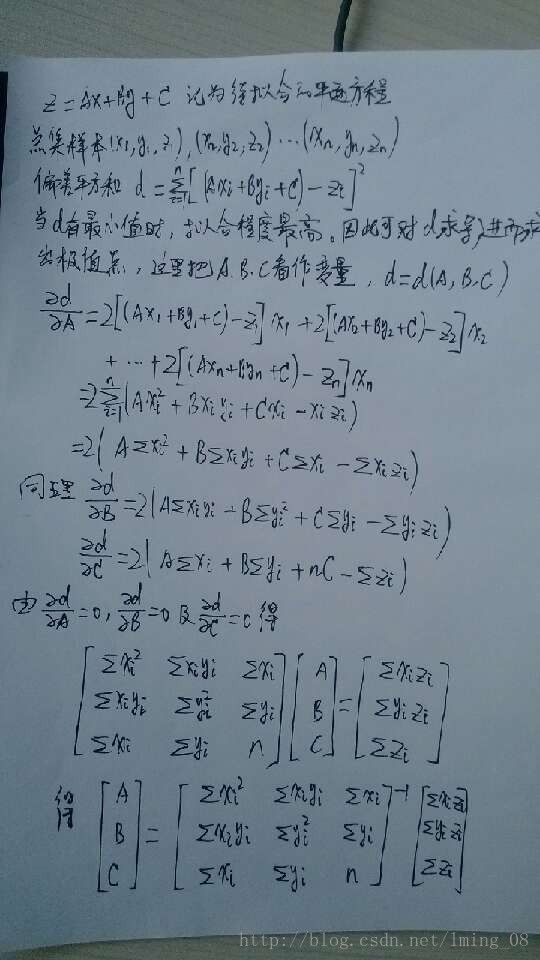 z = Ax+By+C 记为待拟合的平面方程
点集样本(x₁,y₁,z₁),(x₂,y₂,z₂)…(xₙ,yₙ,zₙ)
偏差平方和 d = Σᵢ₌₁ⁿ[(Axᵢ+Byᵢ+C)-zᵢ]²
当d有最小值时,拟合程度最高。因此可对d求导,进而求
出极值点,这里把A.B.C看作变量,d=d(A,B,C)
∂d/∂A=2[(Ax₁+By₁+C)-z₁]x₁+2[(Ax₂+By₂+C)-z₂]x₂
+…+2[(Axₙ+Byₙ+C)-zₙ]xₙ
=2Σᵢ₌₁ⁿ(Axᵢ²+Bxᵢyᵢ+Cxᵢ-xᵢzᵢ)
=2(AΣxᵢ²+BΣxᵢyᵢ+CΣxᵢ-Σxᵢzᵢ)
同理 ∂d/∂B=2(AΣxᵢyᵢ+BΣyᵢ²+CΣyᵢ-Σyᵢzᵢ)
∂d/∂C=2(AΣxᵢ+BΣyᵢ+nC-Σzᵢ)
由∂d/∂A=0,∂d/∂B=0及∂d/∂C=0得
[Σxᵢ² Σxᵢyᵢ Σxᵢ] [A] [Σxᵢzᵢ]
[Σxᵢyᵢ Σyᵢ² Σyᵢ] [B] = [Σyᵢzᵢ]
[Σxᵢ Σyᵢ n] [C] [Σzᵢ]
得 [A] [Σxᵢ² Σxᵢyᵢ Σxᵢ]⁻¹ [Σxᵢzᵢ]
[B] = [Σxᵢyᵢ Σyᵢ² Σyᵢ] [Σyᵢzᵢ]
[C] [Σxᵢ Σyᵢ n] [Σzᵢ]
http://blog.csdn.net/lming_08